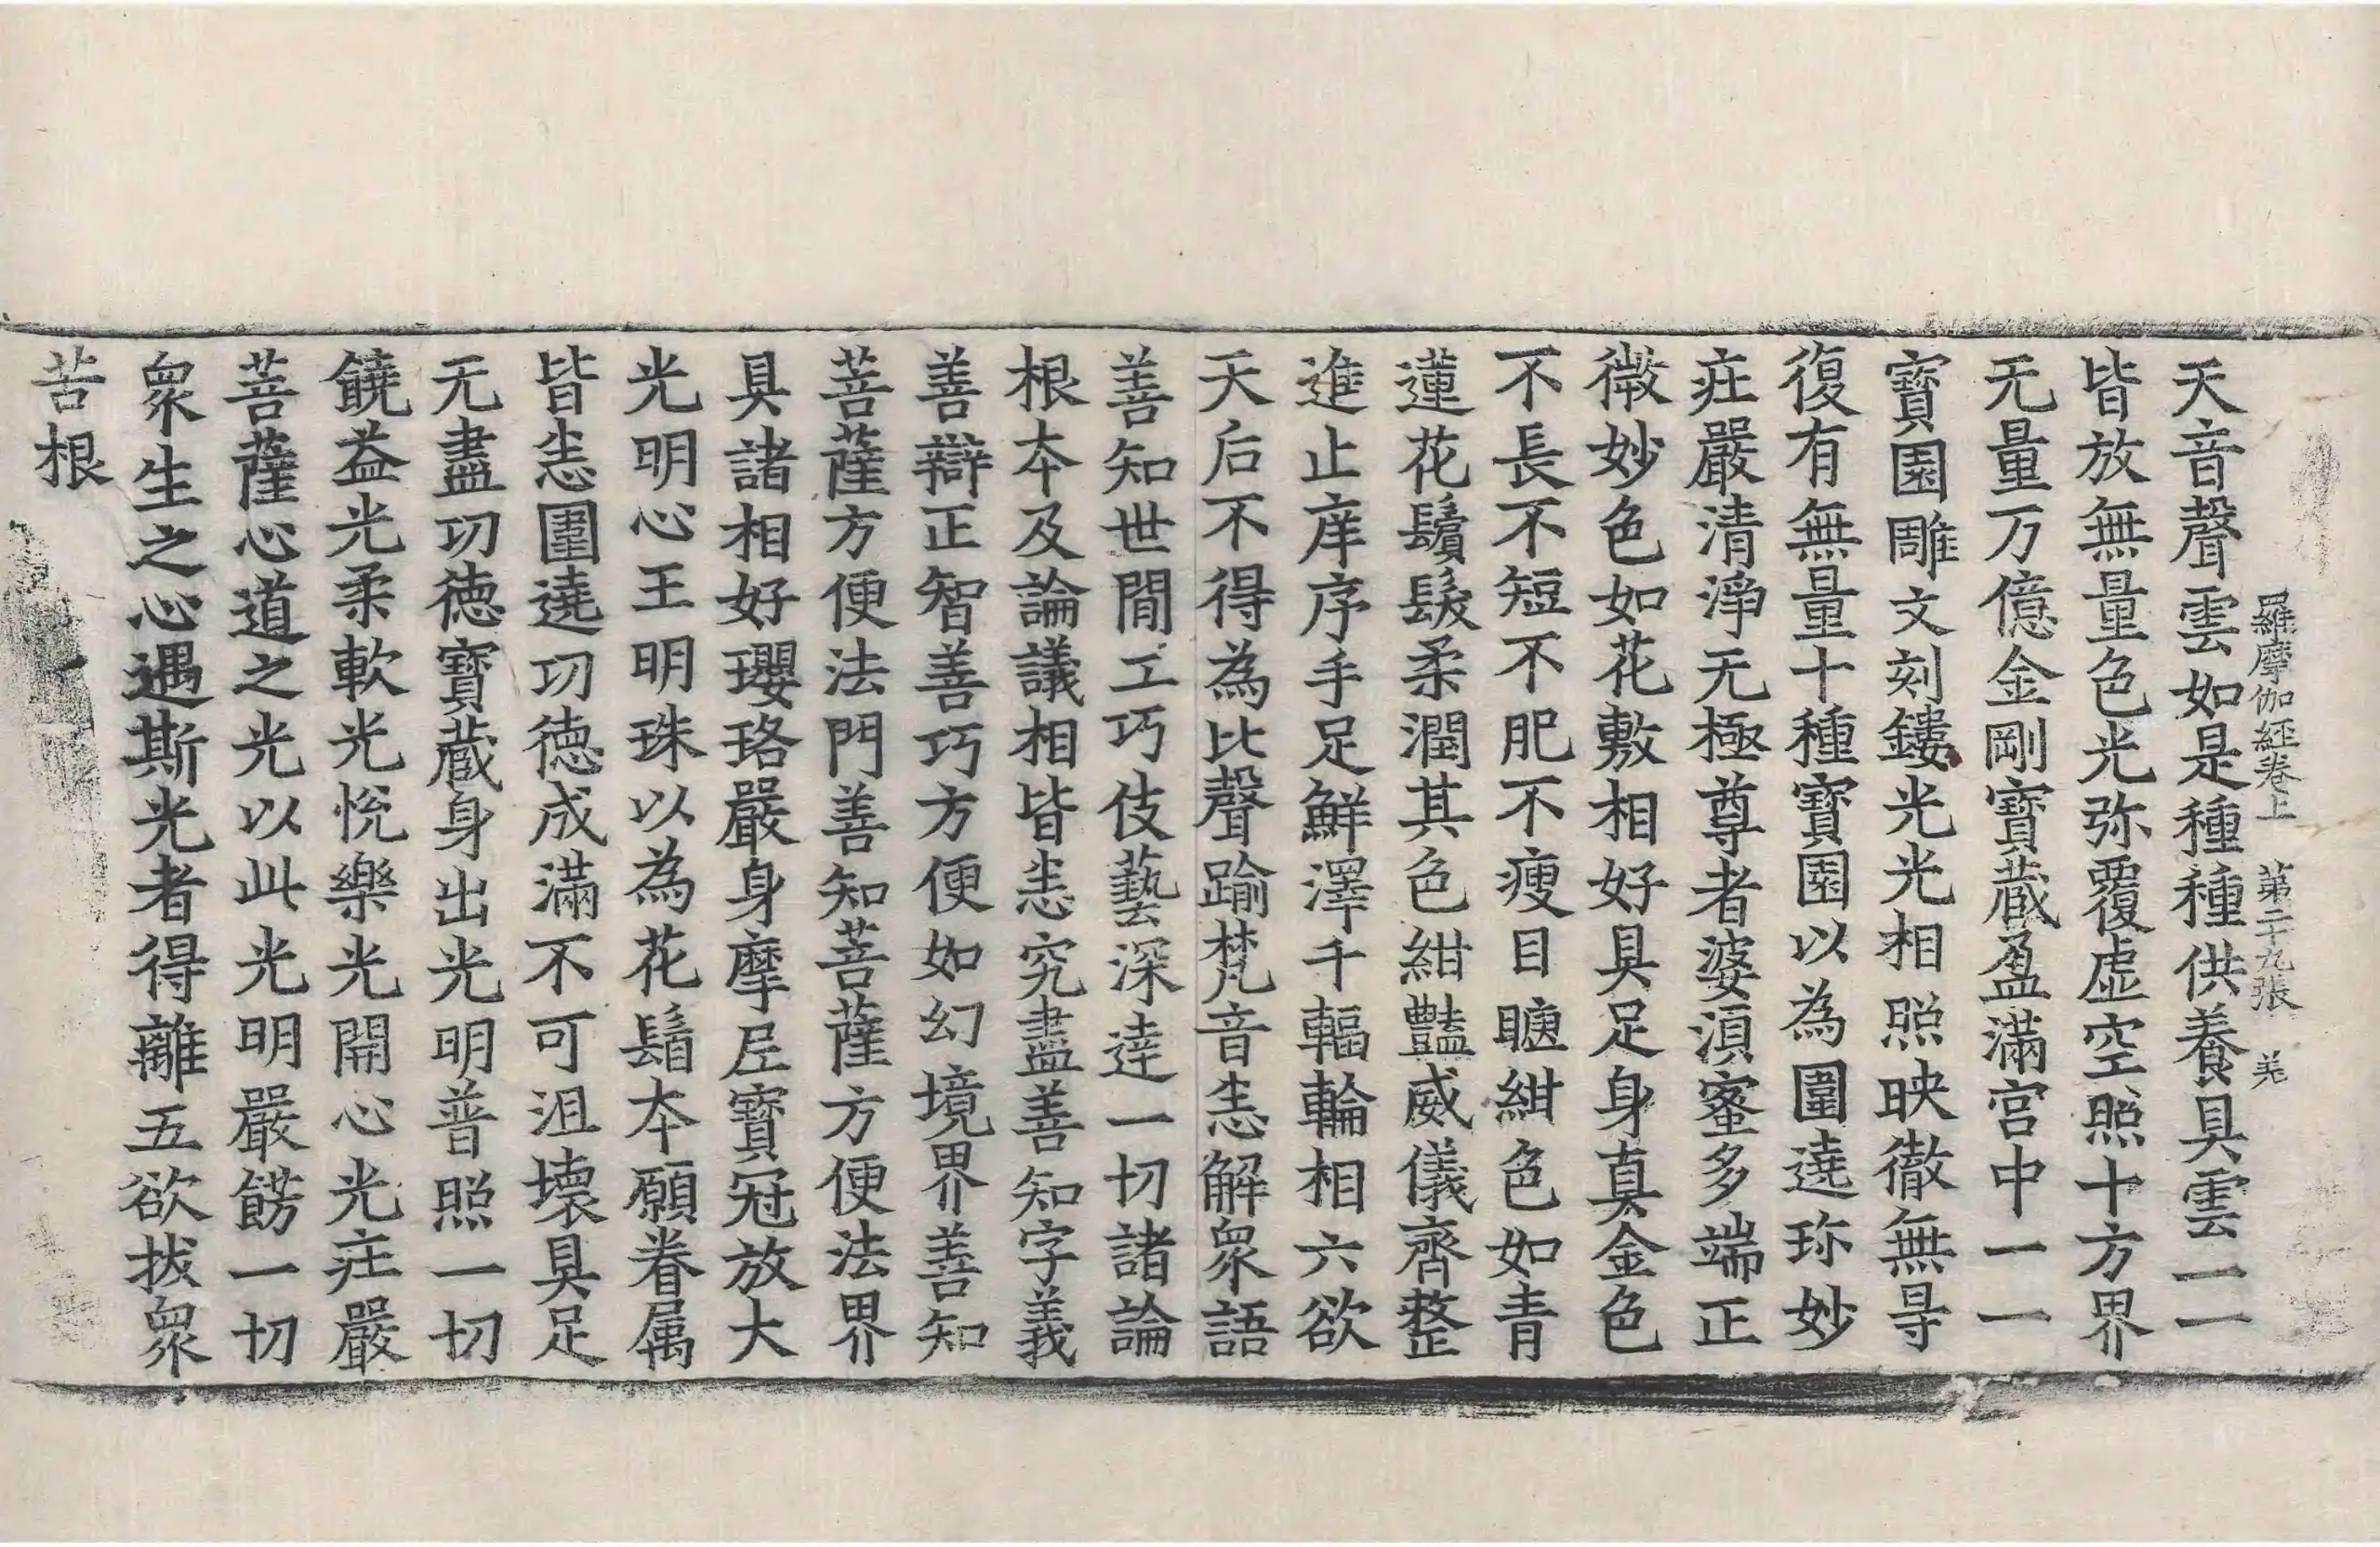 羅摩伽經卷上 第二十九張 羌
天音聲雲如是種種供養具雲一一
皆放無量色光弥覆虛空照十方界
无量万億金剛寶藏盈滿宮中一一
寶園雕文刻鏤光光相照映徹無㝵
復有無量十種寶園以為圍遶珎妙
庄嚴清淨无極尊者婆湏蜜多端正
微妙色如花敷相好具足身真金色
不長不短不肥不瘦目䁱紺色如青
蓮花鬚髮柔潤其色紺豔威儀齊整
進止庠序手足鮮澤千輻輪相六欲
天后不得為比聲踰梵音悉解衆語
善知世間工巧伎藝深達一切諸論
根本及論議相皆悉究盡善知字義
善辯正智善巧方便如幻境界善知
菩薩方便法門善知菩薩方便法界
具諸相好瓔珞嚴身摩尼寶冠放大
光明心王明珠以為花鬘本願眷属
皆悉圍遶功德成滿不可沮壞具足
无盡功德寶藏身出光明普照一切
饒益光柔軟光悅樂光開心光庄嚴
菩薩心道之光以此光明嚴餝一切
衆生之心遇斯光者得離五欲拔衆
苦根